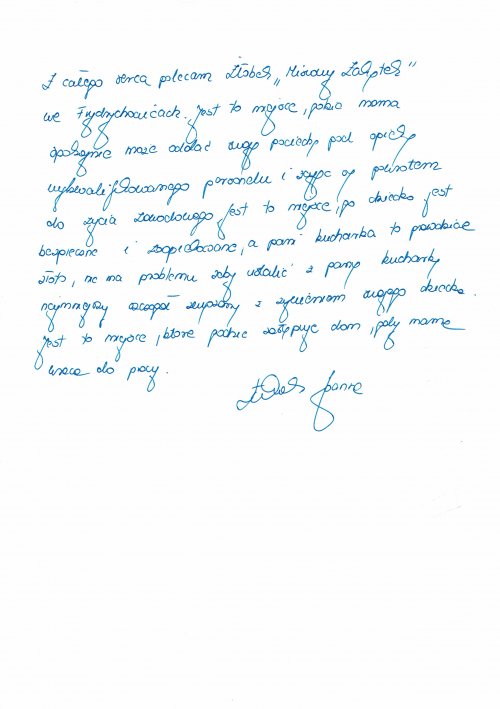 Z całego serca polecam Żłobek „Misiowy Zakątek”
we Frydrychowicach. Jest to miejsce, gdzie mama
spokojnie może oddać swoje pociechy pod opiekę
wykwalifikowanego personelu i zająć się powrotem
do życia zawodowego. Jest to miejsce, gdzie dziecko jest
bezpieczne i zaopiekowane, a pani kucharka to prawdziwe
złoto, nie ma problemu żeby ustalić z panią kucharką
najmniejszy szczegół związany z żywieniem swojego dziecka.
Jest to miejsce, które podczas zastępuje dom, gdy mama
wraca do pracy.
Joanna